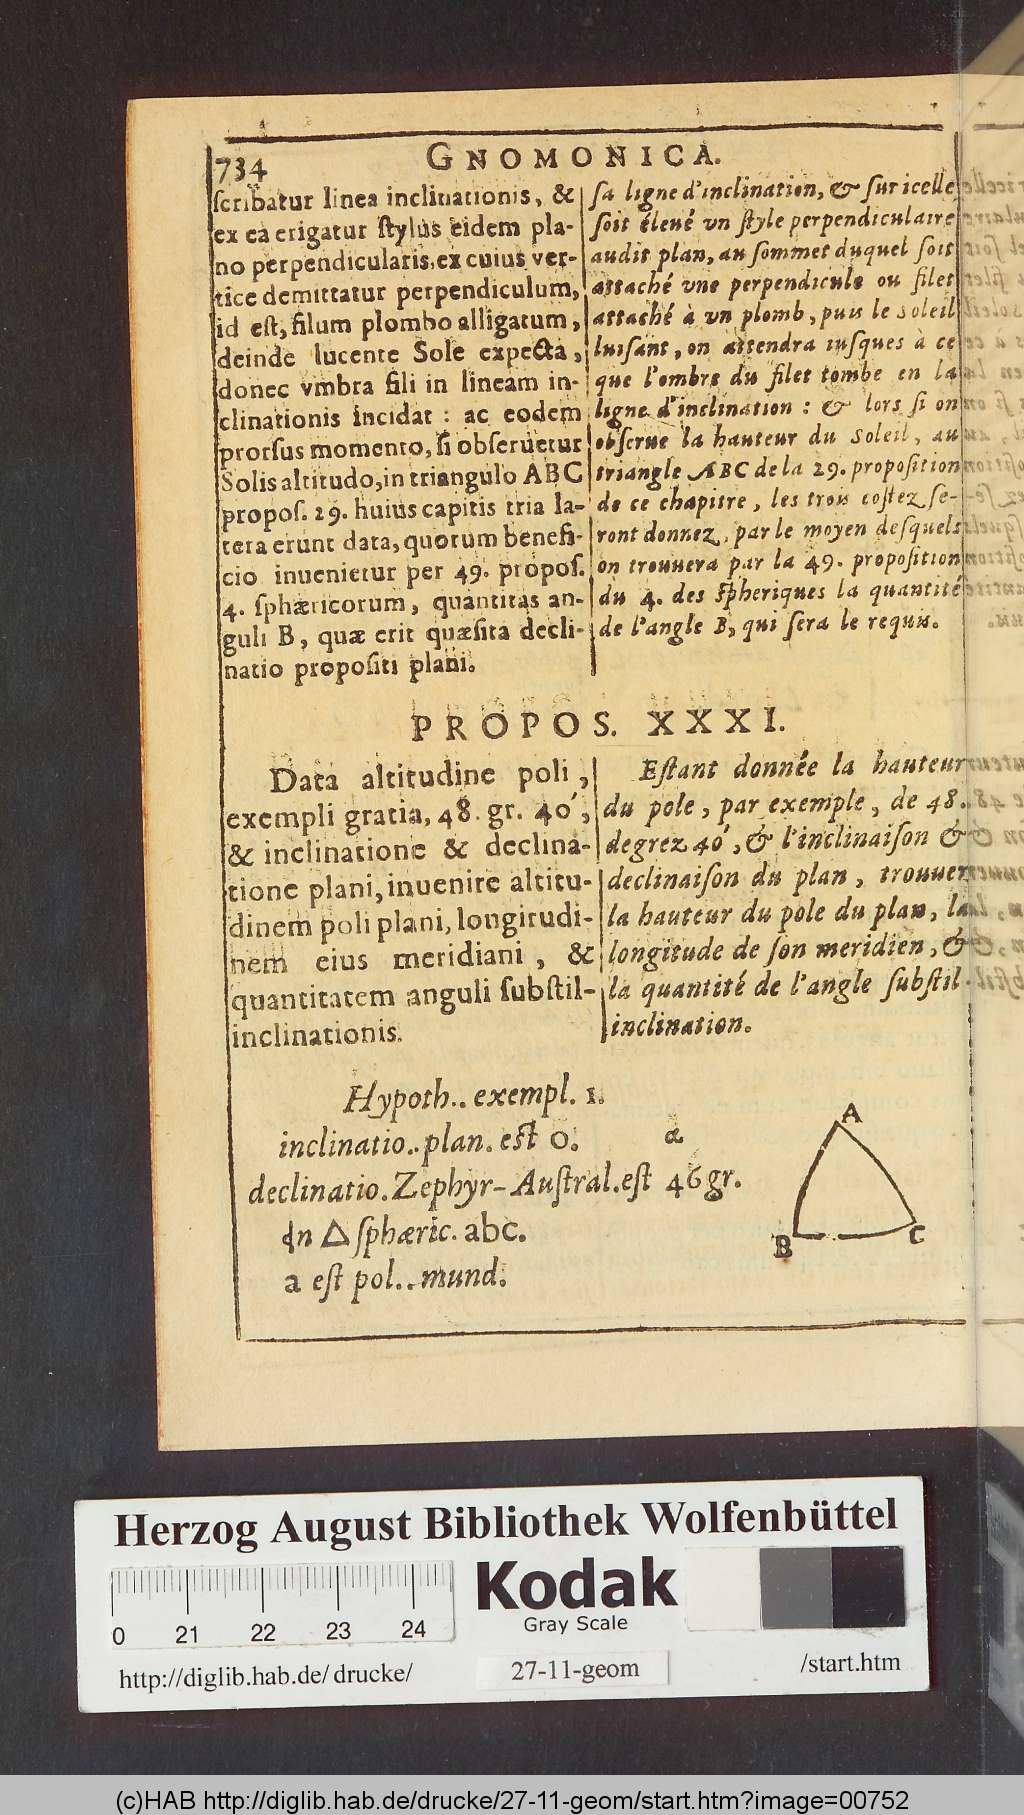 734
GNOMONICA.
scribatur linea inclinationis, &
ex ea erigatur stylus eidem pla-
no perpendicularis, ex cuius ver-
tice demittatur perpendiculum,
id est, filum plombo alligatum,
deinde lucente Sole expecta,
donec vmbra fili in lineam in-
clinationis incidat : ac eodem
prorsus momento, si obseruetur
Solis altitudo, in triangulo ABC
propos. 29. huius capitis tria la-
tera erunt data, quorum benefi-
cio inuenietur per 49. propos.
4. sphæricorum, quantitas an-
guli B, quæ erit quæsita decli-
natio propositi plani.
sa ligne d'inclination, & sur icelle
soit éleué vn style perpendiculaire
audit plan, au sommet duquel soit
attaché vne perpendicule ou filet
attaché à vn plomb, puis le soleil
luisant, on attendra iusques à ce
que l'ombre du filet tombe en la
ligne d'inclination : & lors si on
obserue la hauteur du soleil, au
triangle ABC de la 29. proposition
de ce chapitre, les trois costez se-
ront donnez, par le moyen desquels
on trouuera par la 49. proposition
du 4. des spheriques la quantité
de l'angle B, qui sera le requis.
PROPOS. XXXI.
Data altitudine poli,
exempli gratia, 48. gr. 40′,
& inclinatione & declina-
tione plani, inuenire altitu-
dinem poli plani, longitudi-
nem eius meridiani, &
quantitatem anguli substil-
inclinationis.
Estant donnée la hauteur
du pole, par exemple, de 48.
degrez 40′, & l'inclinaison &
declinaison du plan, trouuer
la hauteur du pole du plan, la
longitude de son meridien, &
la quantité de l'angle substil-
inclination.
Hypoth.. exempl. 1.
inclinatio.. plan. est 0. a
declinatio. Zephyr-Austral. est 46 gr.
In △ sphæric. abc.
a est pol.. mund.
A
B
C
Herzog August Bibliothek Wolfenbüttel
0 21 22 23 24
Kodak
Gray Scale
http://diglib.hab.de/ drucke/
27-11-geom
/start.htm
(c)HAB http://diglib.hab.de/drucke/27-11-geom/start.htm?image=00752